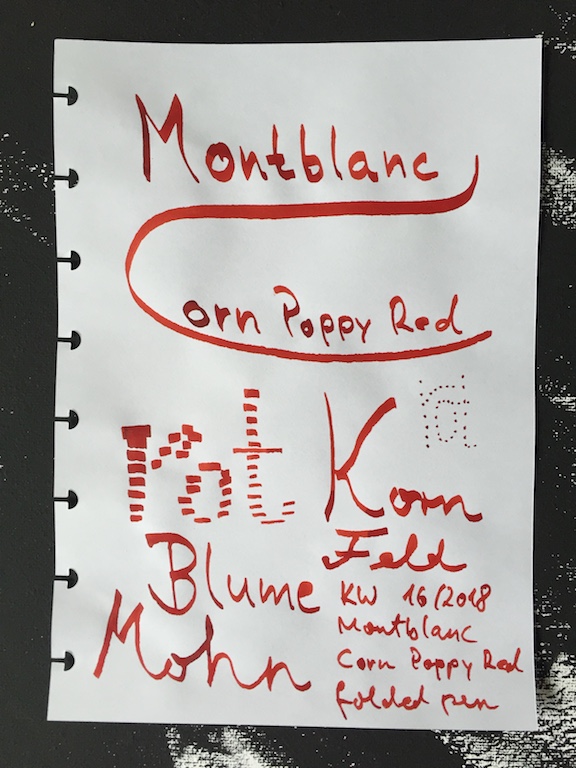 Montblanc
Corn Poppy Red
rot
Korn
Feld
Blume
Mohn
KW 16/2018
Montblanc
Corn Poppy Red
folded pen